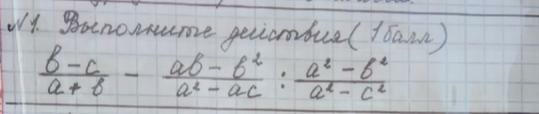 №1. Выполните действия (1 балл)
(b - c)/(a + b) - (ab - b²)/(a² - ac) : (a² - b²)/(a² - c²)